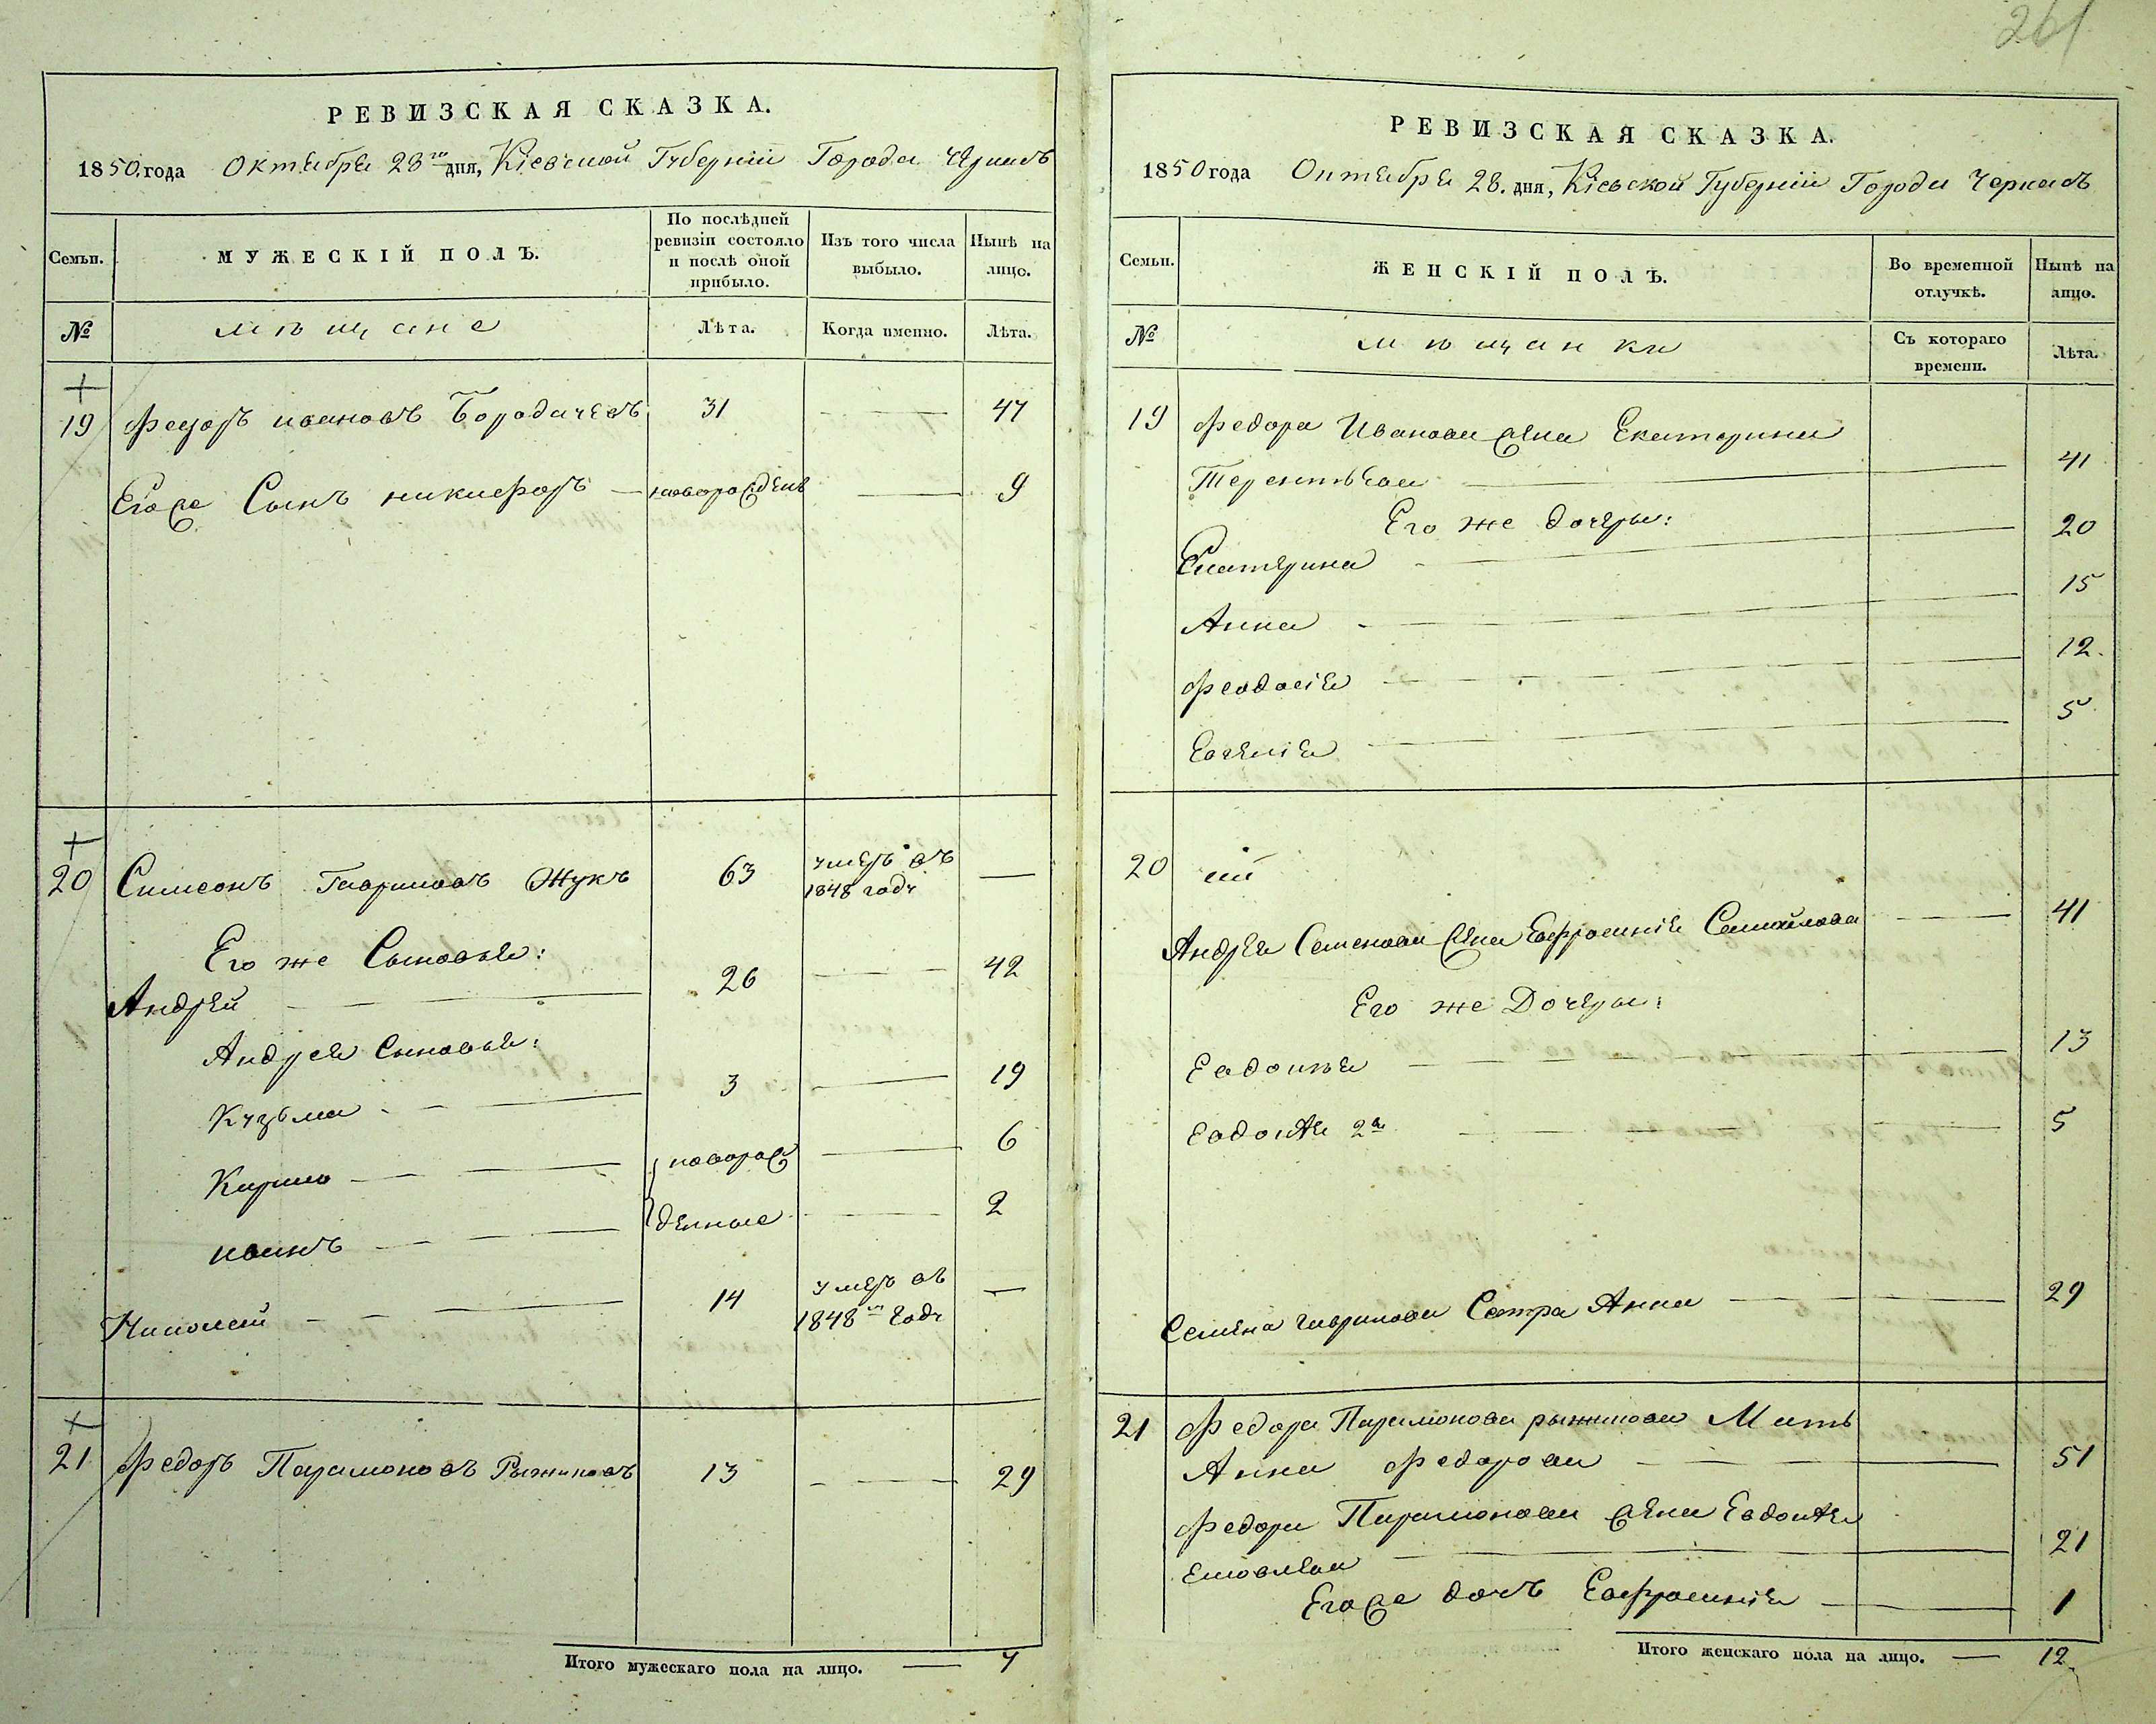 261
РЕВИЗСКАЯ СКАЗКА.
1850 года Октября 28го дня, Кіевской Губерніи Города Черкасъ
Семьи.
МУЖЕСКІЙ ПОЛЪ.
По послѣдней ревизіи состояло и послѣ оной прибыло.
Изъ того числа выбыло.
Нынѣ на лицо.
№
мѣщане
Лѣта.
Когда именно.
Лѣта.
19 Федоръ Ивановъ Бородачевъ 31 — 47
Его же Сынъ Никифоръ — новорожденъ — 9
20 Симеонъ Гавриловъ Жукъ 63 умеръ въ 1848 году —
Его же Сыновья:
Андрей — 26 — 42
Андрея Сыновья:
Кузьма — 3 — 19
Кирило — новорож — 6
Иванъ — денные — 2
Николай — 14 умеръ въ 1848м Году —
21 Федоръ Парамоновъ Рыжиковъ 13 — 29
Итого мужескаго пола на лицо. — 7
РЕВИЗСКАЯ СКАЗКА.
1850 года Октября 28. дня, Кіевской Губерніи Города Черкасъ
Семьи.
ЖЕНСКІЙ ПОЛЪ.
Во временной отлучкѣ.
Нынѣ на лицо.
№
мѣщанки
Съ котораго времени.
Лѣта.
19 Федора Иванова жена Екатерина
Терентьева — 41
Его же дочеры:
Екатерина — 20
Анна — 15
Феодосія — 12.
Евгенія — 5
20
Андрея Семенова жена Евфросинія Самойлова — 41
Его же Дочеры:
Евдокія — 13
Евдокія 2я — 5
Семена Гаврилова Сестра Анна — 29
21 Федора Парамонова Рыжикова Мать
Анна Федорова — 51
Федора Парамонова жена Евдокія
Яковлева — 21
Его же дочь Евфросинія — 1
Итого женскаго пола на лицо. — 12.